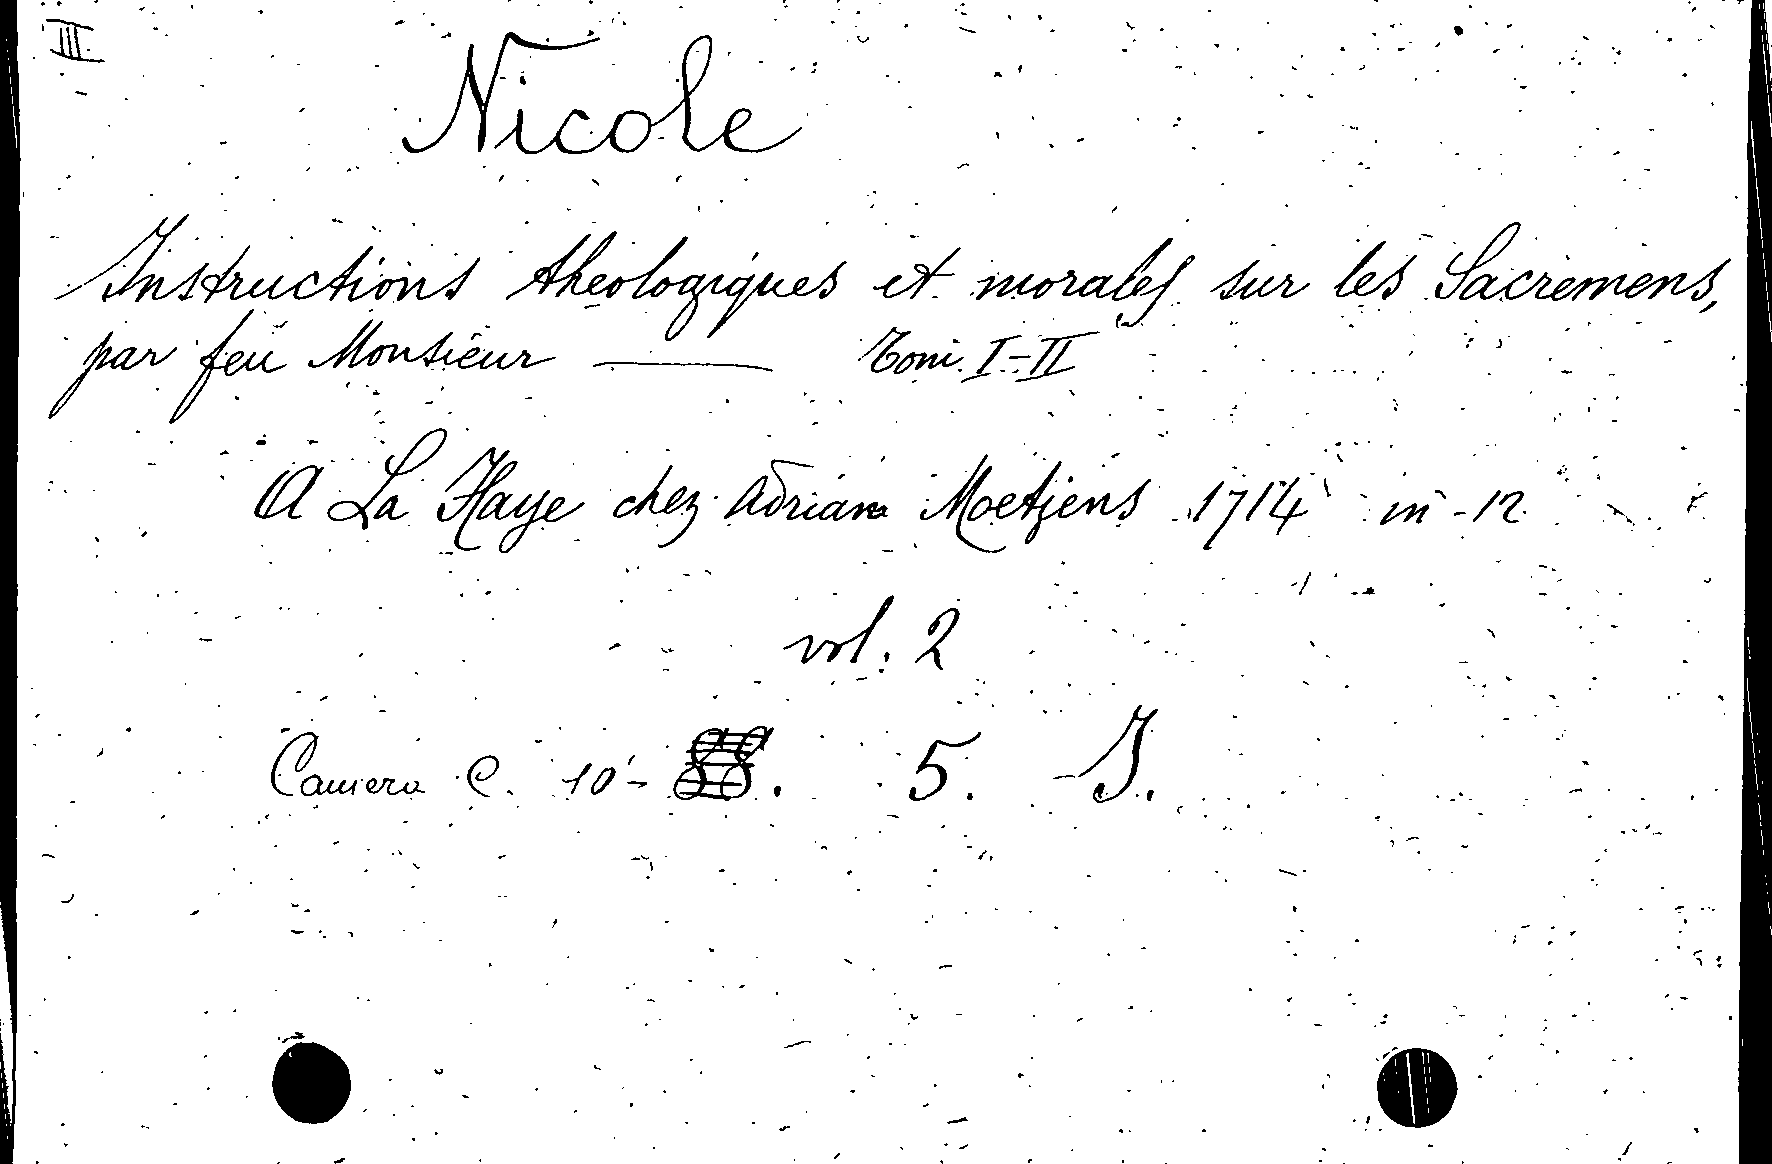 III.
Nicole
Instructions théologiques et morales sur les Sacremens,
par feu Monsieur ——— Tomi I-II
A La Haye chez Adrian Moetjens 1714 in-12
vol. 2
Camera C. 10 - 5. J.